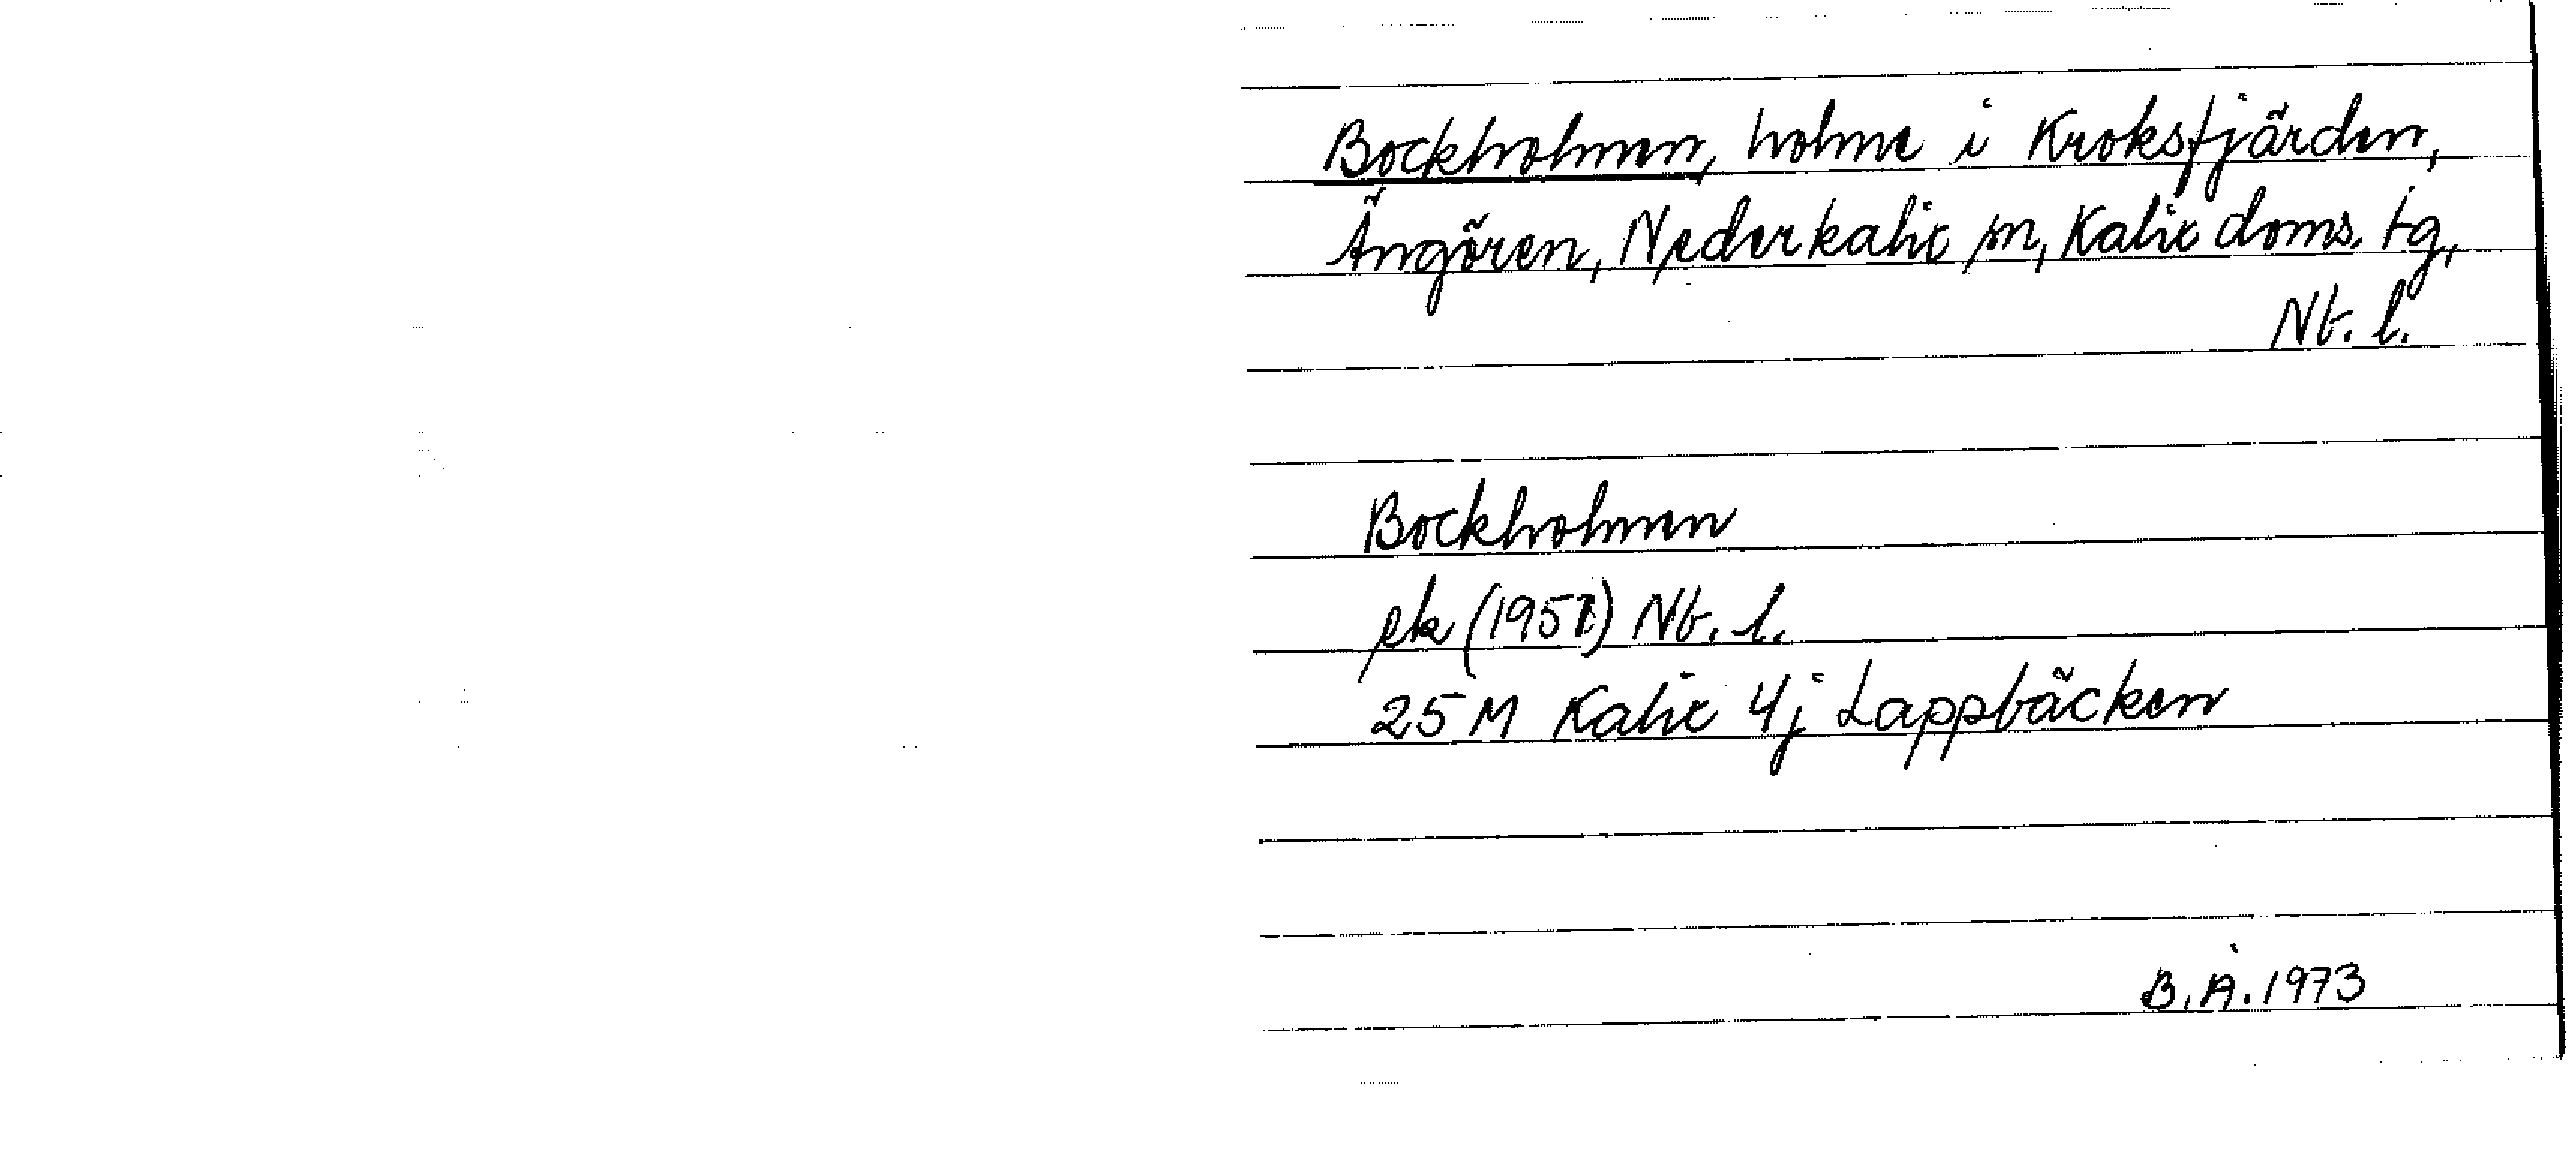 Bockholmen, holme i Kroksfjärden,
Ängören, Nederkalix sn, Kalix doms. tg,
Nb. l.
Bockholmen
ek (1951) Nb. l.
25 M Kalix 4j Lappbäcken
B. Å. 1973